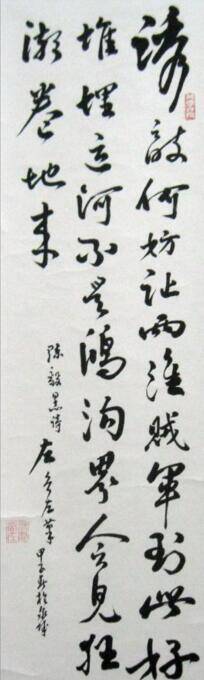 诱敌何妨让两淮贼军到此好
堆埋运河不是鸿沟界会见狂
潮卷地来
陈毅诗
左笔
甲子春於